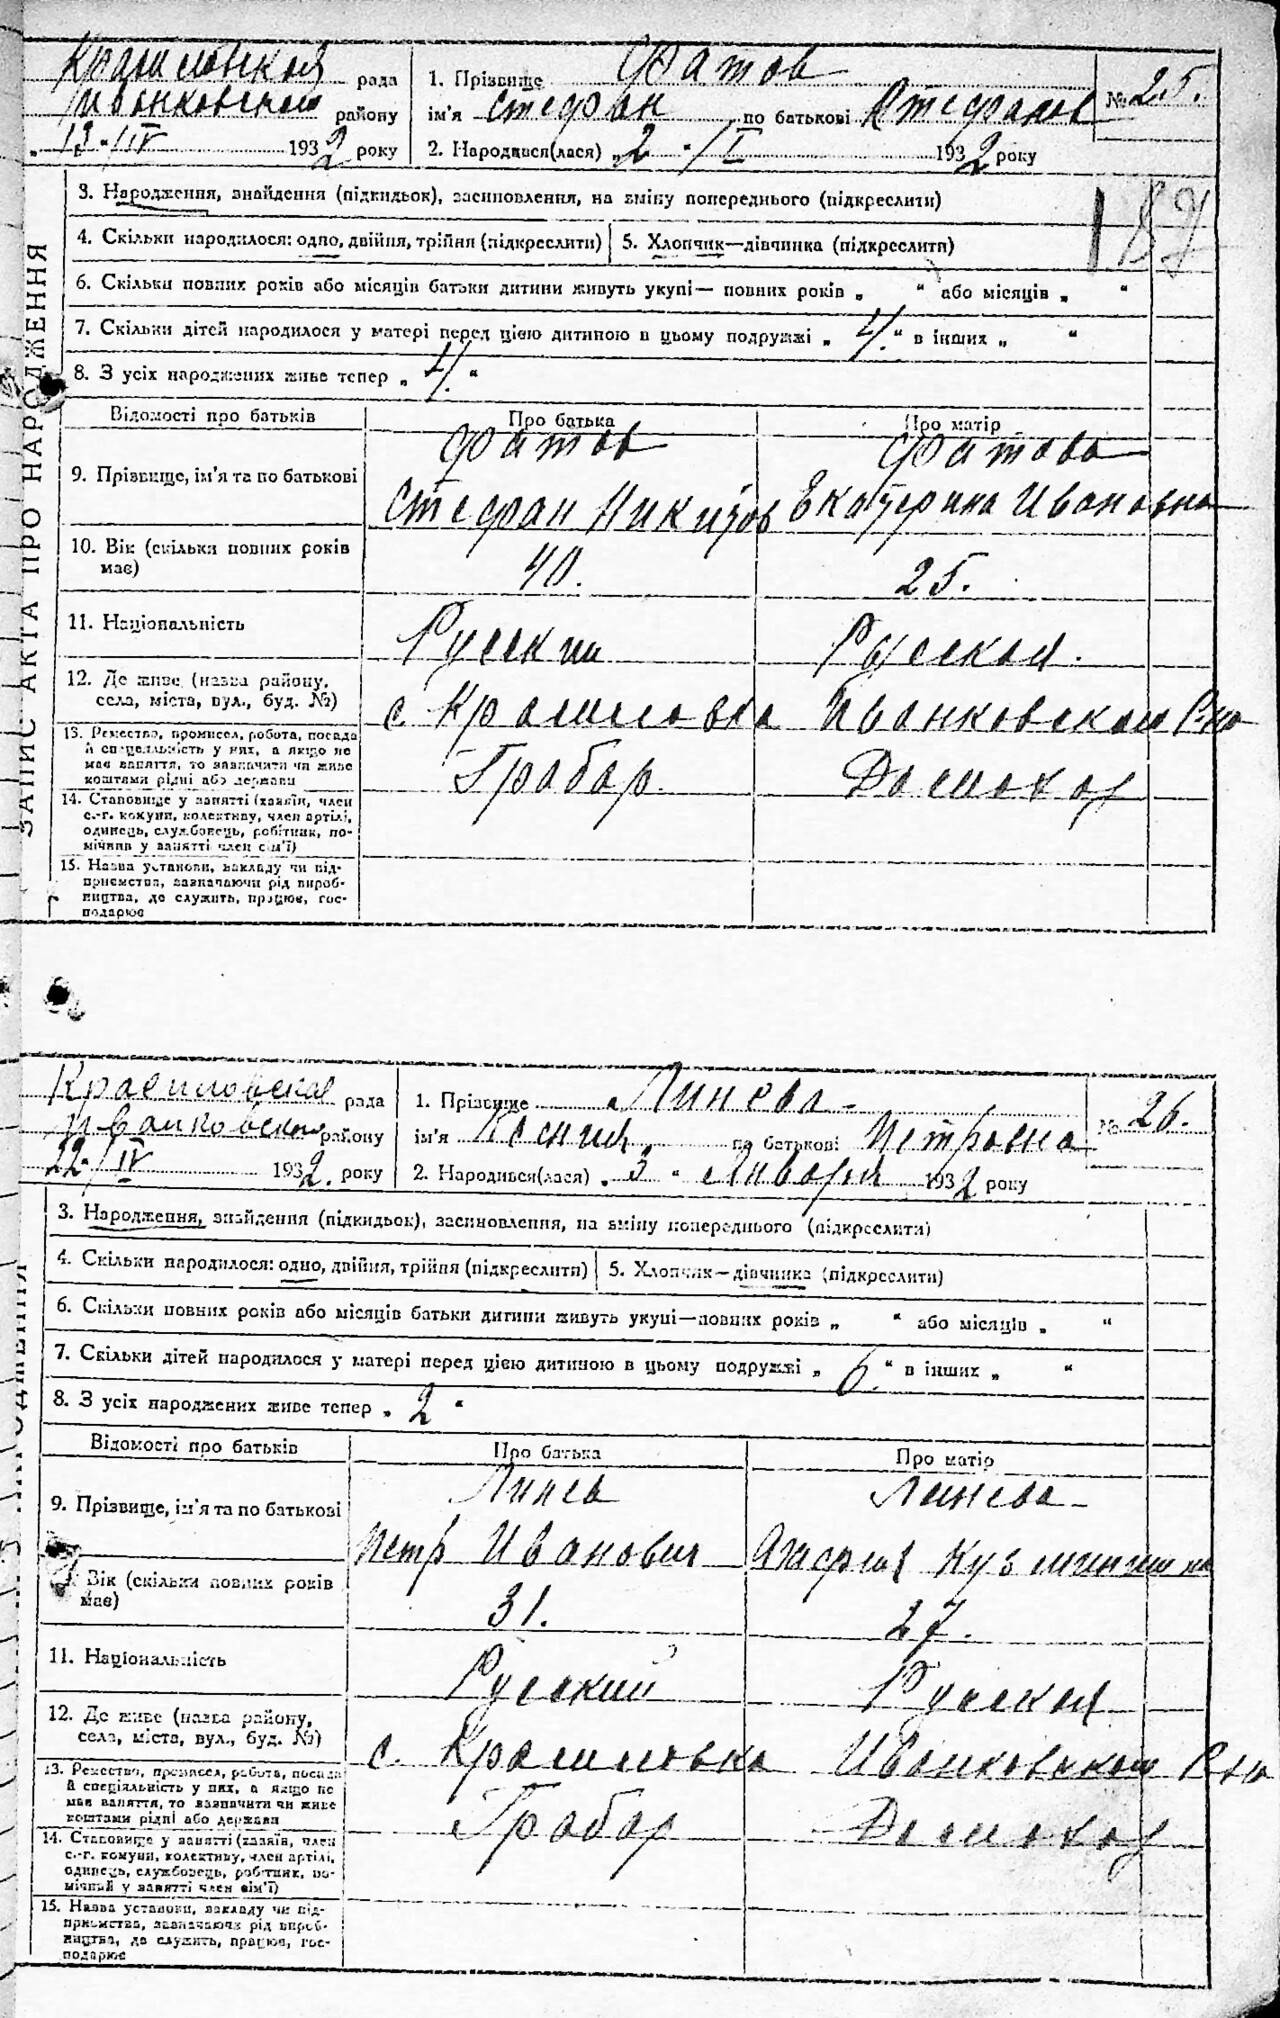 рада
1. Прізвище Фатов
№ 25.
району
ім'я Стефан по батькові Стефанов
13 / IV 1932 року
2. Народився(лася) „2 " / I 1932 року
187
ЗАПИС АКТА ПРО НАРОДЖЕННЯ
3. Народження, знайдення (підкидьок), засиновлення, на зміну попереднього (підкреслити)
4. Скільки народилося: одно, двійня, трійня (підкреслити) 5. Хлопчик—дівчинка (підкреслити)
6. Скільки повних років або місяців батьки дитини живуть укупі— повних років „ " або місяців „ "
7. Скільки дітей народилося у матері перед цією дитиною в цьому подружжі „ 4. " в інших „ "
8. З усіх народжених живе тепер „ 4. "
Відомості про батьків Про батька Про матір
9. Прізвище, ім'я та по батькові
Фатов Фатова
Стефан Екатерина Ивановна
10. Вік (скільки повних років має)
40. 25.
11. Національність Русский Русская.
12. Де живе (назва району, села, міста, вул., буд. №)
с. Крашиловка Иванковского Р-на
13. Ремество, промисел, робота, посада й спеціальність у них, а якщо не має заняття, то зазначити чи живе коштами рідні або держави
Грабар Домохоз
14. Становище у занятті (хазяїн, член с.-г. комуни, колективу, член артілі, одинець, службовець, робітник, помічник у занятті член сім'ї)
15. Назва установи, закладу чи підприємства, зазначаючи рід виробництва, де служить, працює, господарює
рада
1. Прізвище Линева
№ 26.
Иванковского району
ім'я Ксения по батькові Петровна
22 / IV 1932. року
2. Народився(лася) „ 3 " Января 1932 року
3. Народження, знайдення (підкидьок), засиновлення, на зміну попереднього (підкреслити)
4. Скільки народилося: одно, двійня, трійня (підкреслити) 5. Хлопчик—дівчинка (підкреслити)
6. Скільки повних років або місяців батьки дитини живуть укупі—повних років „ " або місяців „ "
7. Скільки дітей народилося у матері перед цією дитиною в цьому подружжі „ 6. " в інших „ "
8. З усіх народжених живе тепер „ 2 "
Відомості про батьків Про батька Про матір
9. Прізвище, ім'я та по батькові
Линев Линева
Петр Иванович
Вік (скільки повних років має)
31. 27.
11. Національність Русский Русская
12. Де живе (назва району, села, міста, вул., буд. №)
с. Крашиловка Иванковского Р-на
13. Ремество, промисел, робота, посада й спеціальність у них, а якщо не має заняття, то зазначити чи живе коштами рідні або держави
Грабар Домохоз
14. Становище у занятті (хазяїн, член с.-г. комуни, колективу, член артілі, одинець, службовець, робітник, помічний у занятті член сім'ї)
15. Назва установи, закладу чи підприємства, зазначаючи рід виробництва, де служить, працює, господарює